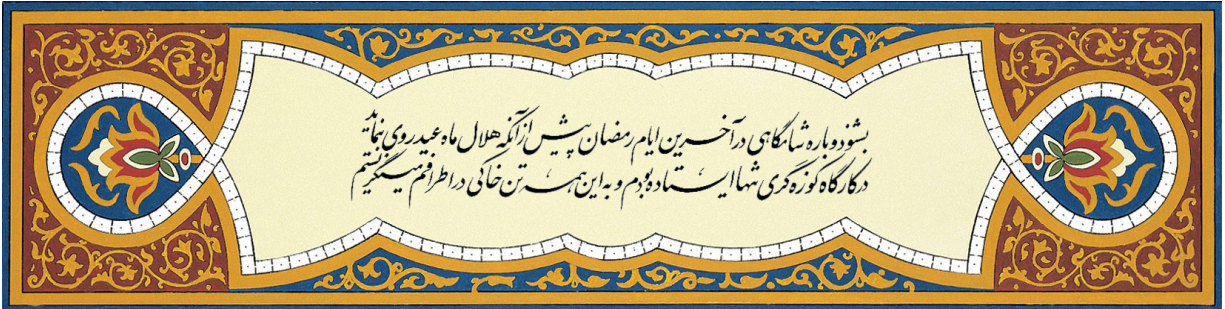 بشنو دوباره شامگاهی در آخرین ایام رمضان پیش از آنکه هلال ماه عید روی نماید
در کارگاه کوزه گری تنها ایستاده بودم و به این همه تن خاکی در اطرافم مینگریستم